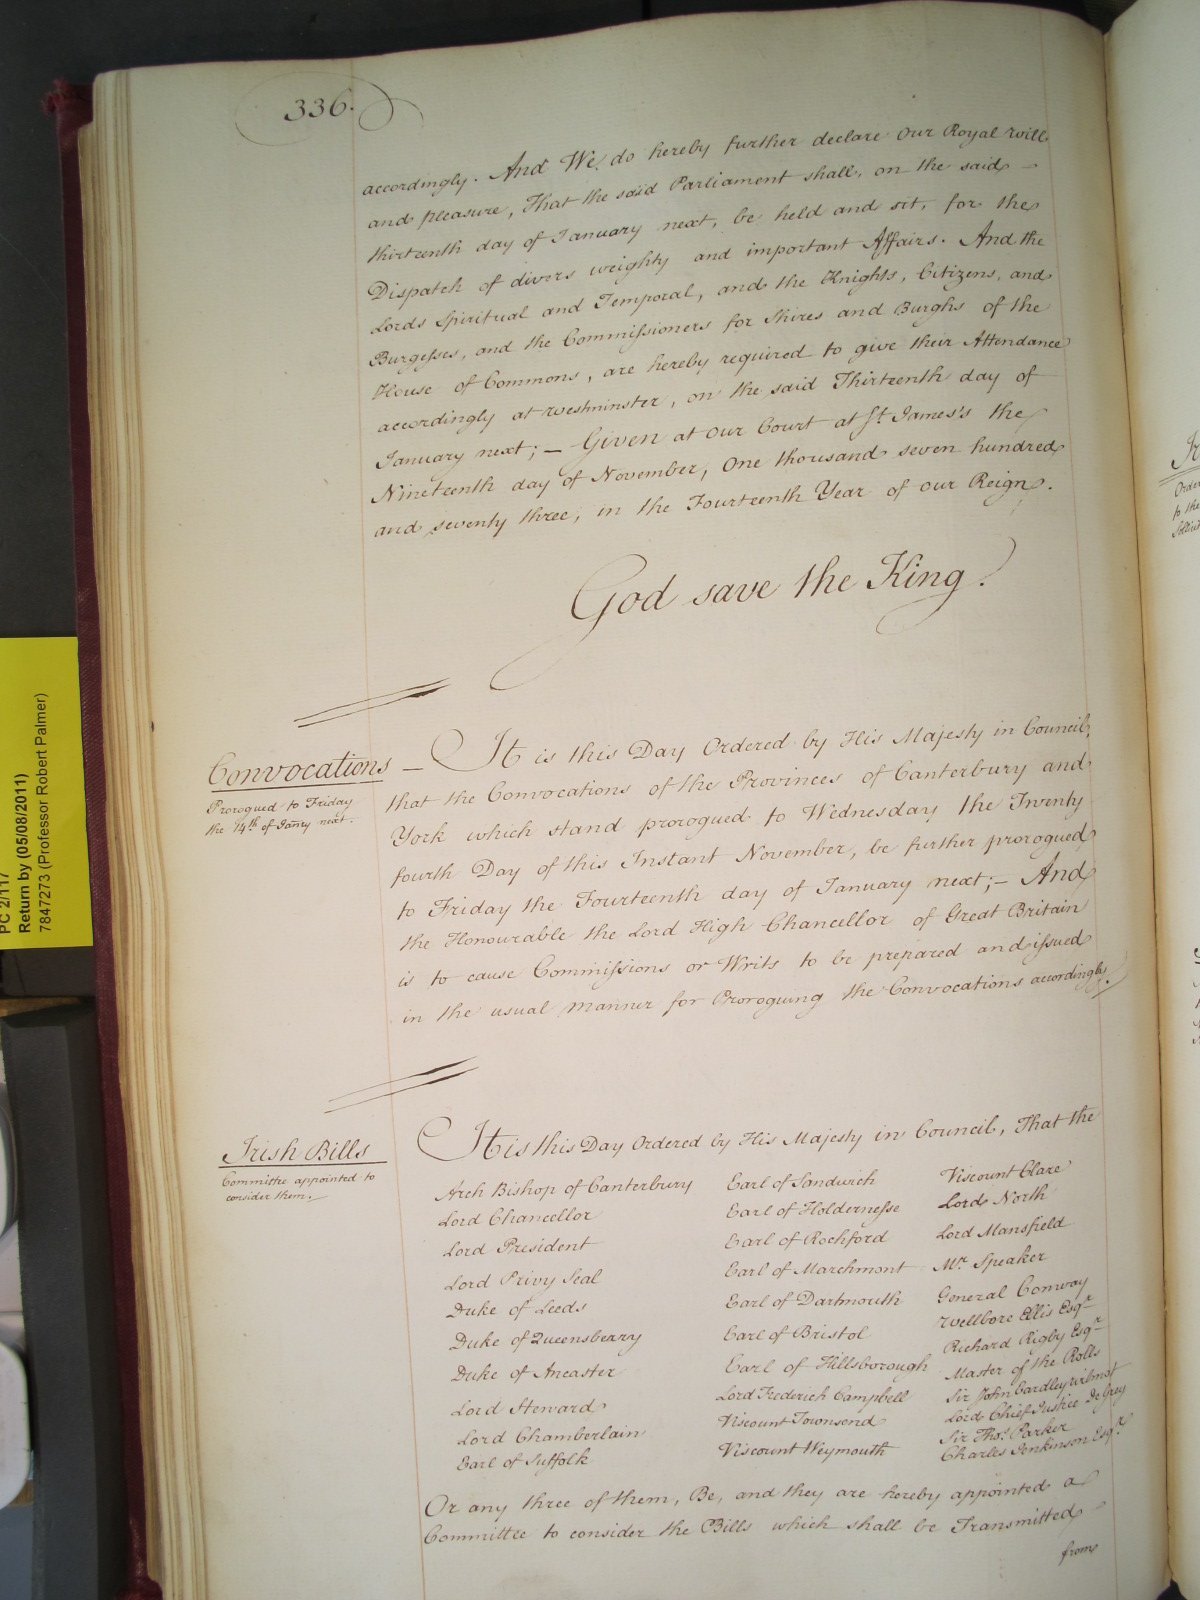 336.
accordingly. And We do hereby further declare Our Royal Will
and pleasure, That the said Parliament shall, on the said
thirteenth day of January next, be held and sit, for the
Dispatch of divers weighty and important Affairs. And the
Lords Spiritual and Temporal, and the Knights, Citizens, and
Burgesses, and the Commissioners for Shires and Burghs of the
House of Commons, are hereby required to give their Attendance
accordingly at Westminster, on the said Thirteenth day of
January next; — Given at Our Court at St. James's the
Nineteenth day of November, One thousand seven hundred
and seventy three, in the Fourteenth Year of Our Reign.
God save the King.
Convocations —
Prorogued to Friday
the 14th of Janry next.
It is this Day Ordered by His Majesty in Council,
that the Convocations of the Provinces of Canterbury and
York which stand prorogued to Wednesday the Twenty
fourth Day of this Instant November, be further prorogued
to Friday the Fourteenth day of January next; — And
the Honourable the Lord High Chancellor of Great Britain
is to cause Commissions or Writs to be prepared and issued
in the usual Manner for Proroguing the Convocations accordingly.
Irish Bills
Committee appointed to
consider them.
It is this Day Ordered by His Majesty in Council, That the
Arch Bishop of Canterbury
Lord Chancellor
Lord President
Lord Privy Seal
Duke of Leeds
Duke of Queensberry
Duke of Ancaster
Lord Steward
Lord Chamberlain
Earl of Suffolk
Earl of Sandwich
Earl of Holdernesse
Earl of Rochford
Earl of Marchmont
Earl of Dartmouth
Earl of Bristol
Earl of Hillsborough
Lord Frederick Campbell
Viscount Townsend
Viscount Weymouth
Viscount Clare
Lord North
Lord Mansfield
Mr. Speaker
General Conway
Wellbore Ellis Esqr
Richard Rigby Esqr
Master of the Rolls
Sir John Eardley Wilmot
Lord Chief Justice De Grey
Sir Thos. Parker
Charles Jenkinson Esqr
Or any three of them, Be, and they are hereby appointed a
Committee to consider the Bills which shall be Transmitted
from
PC 2/117
Return by (05/08/2011)
7847273 (Professor Robert Palmer)